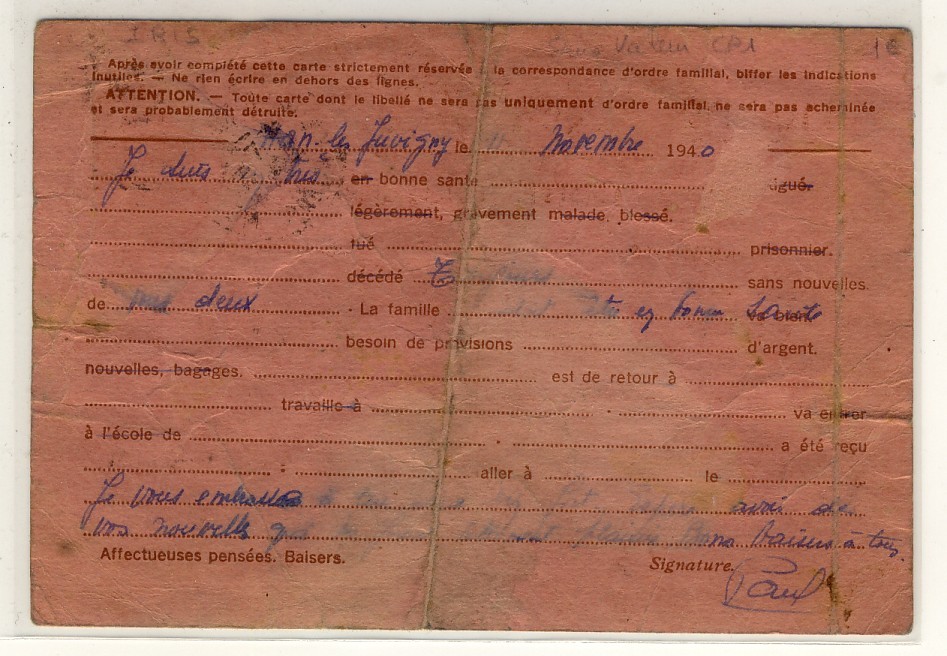 IRIS Sans Valeur CP1 1€
Après avoir complété cette carte strictement réservée à la correspondance d'ordre familial, biffer les indications
inutiles. — Ne rien écrire en dehors des lignes.
ATTENTION. — Toute carte dont le libellé ne sera pas uniquement d'ordre familial, ne sera pas acheminée
et sera probablement détruite.
les Juvigny le Novembre 1940
Je suis très en bonne santé igué.
légèrement, gravement malade, blessé.
tué prisonnier.
décédé sans nouvelles
de deux . La famille en bonne santé va bien
besoin de provisions d'argent.
nouvelles, bagages. est de retour à
travaille à . va entrer
à l'école de . a été reçu
: aller à le
Je vous embrasse avoir de
vos nouvelles Bons baisers à tous.
Affectueuses pensées. Baisers. Signature.
Paul